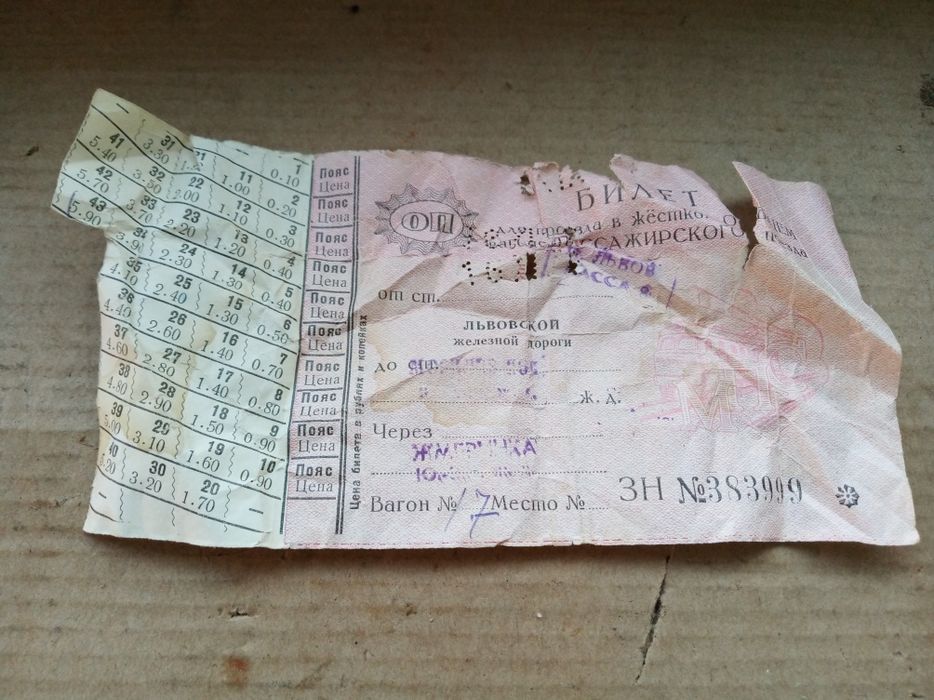 41 31 21 11 1
5.40 3.30 1.00 0.10
42 32 22 12 2
5.70 3.50 2.00 1.10 0.20
43 33 23 13 3
5.90 3.70 2.20 1.20 0.30
34 24 14 4
3.90 2.30 1.30 0.40
35 25 15 5
2.40 1.30 0.50
36 26 16 6
4.40 2.60 1.40 0.70
37 27 17 7
4.60 2.80 1.40 0.80
38 28 18 8
4.80 2.90 1.50 0.90
39 29 19 9
5.00 3.10 1.60 0.90
40 30 20 10
3.20 1.70
Пояс
Цена
Пояс
Цена
Пояс
Цена
Пояс
Цена
Пояс
Цена
Пояс
Цена
Пояс
Цена
Пояс
Цена
Пояс
Цена
Пояс
Цена
Цена билета в рублях и копейках
БИЛЕТ
для проезда в жёстко
ПАССАЖИРСКОГО
ЛЬВОВ
КАССА
от ст.
ЛЬВОВСКОЙ
железной дороги
до
Ж. Д.
Через
ЖМЕРИНКА
Вагон № 17 Место №
ЗН №383999